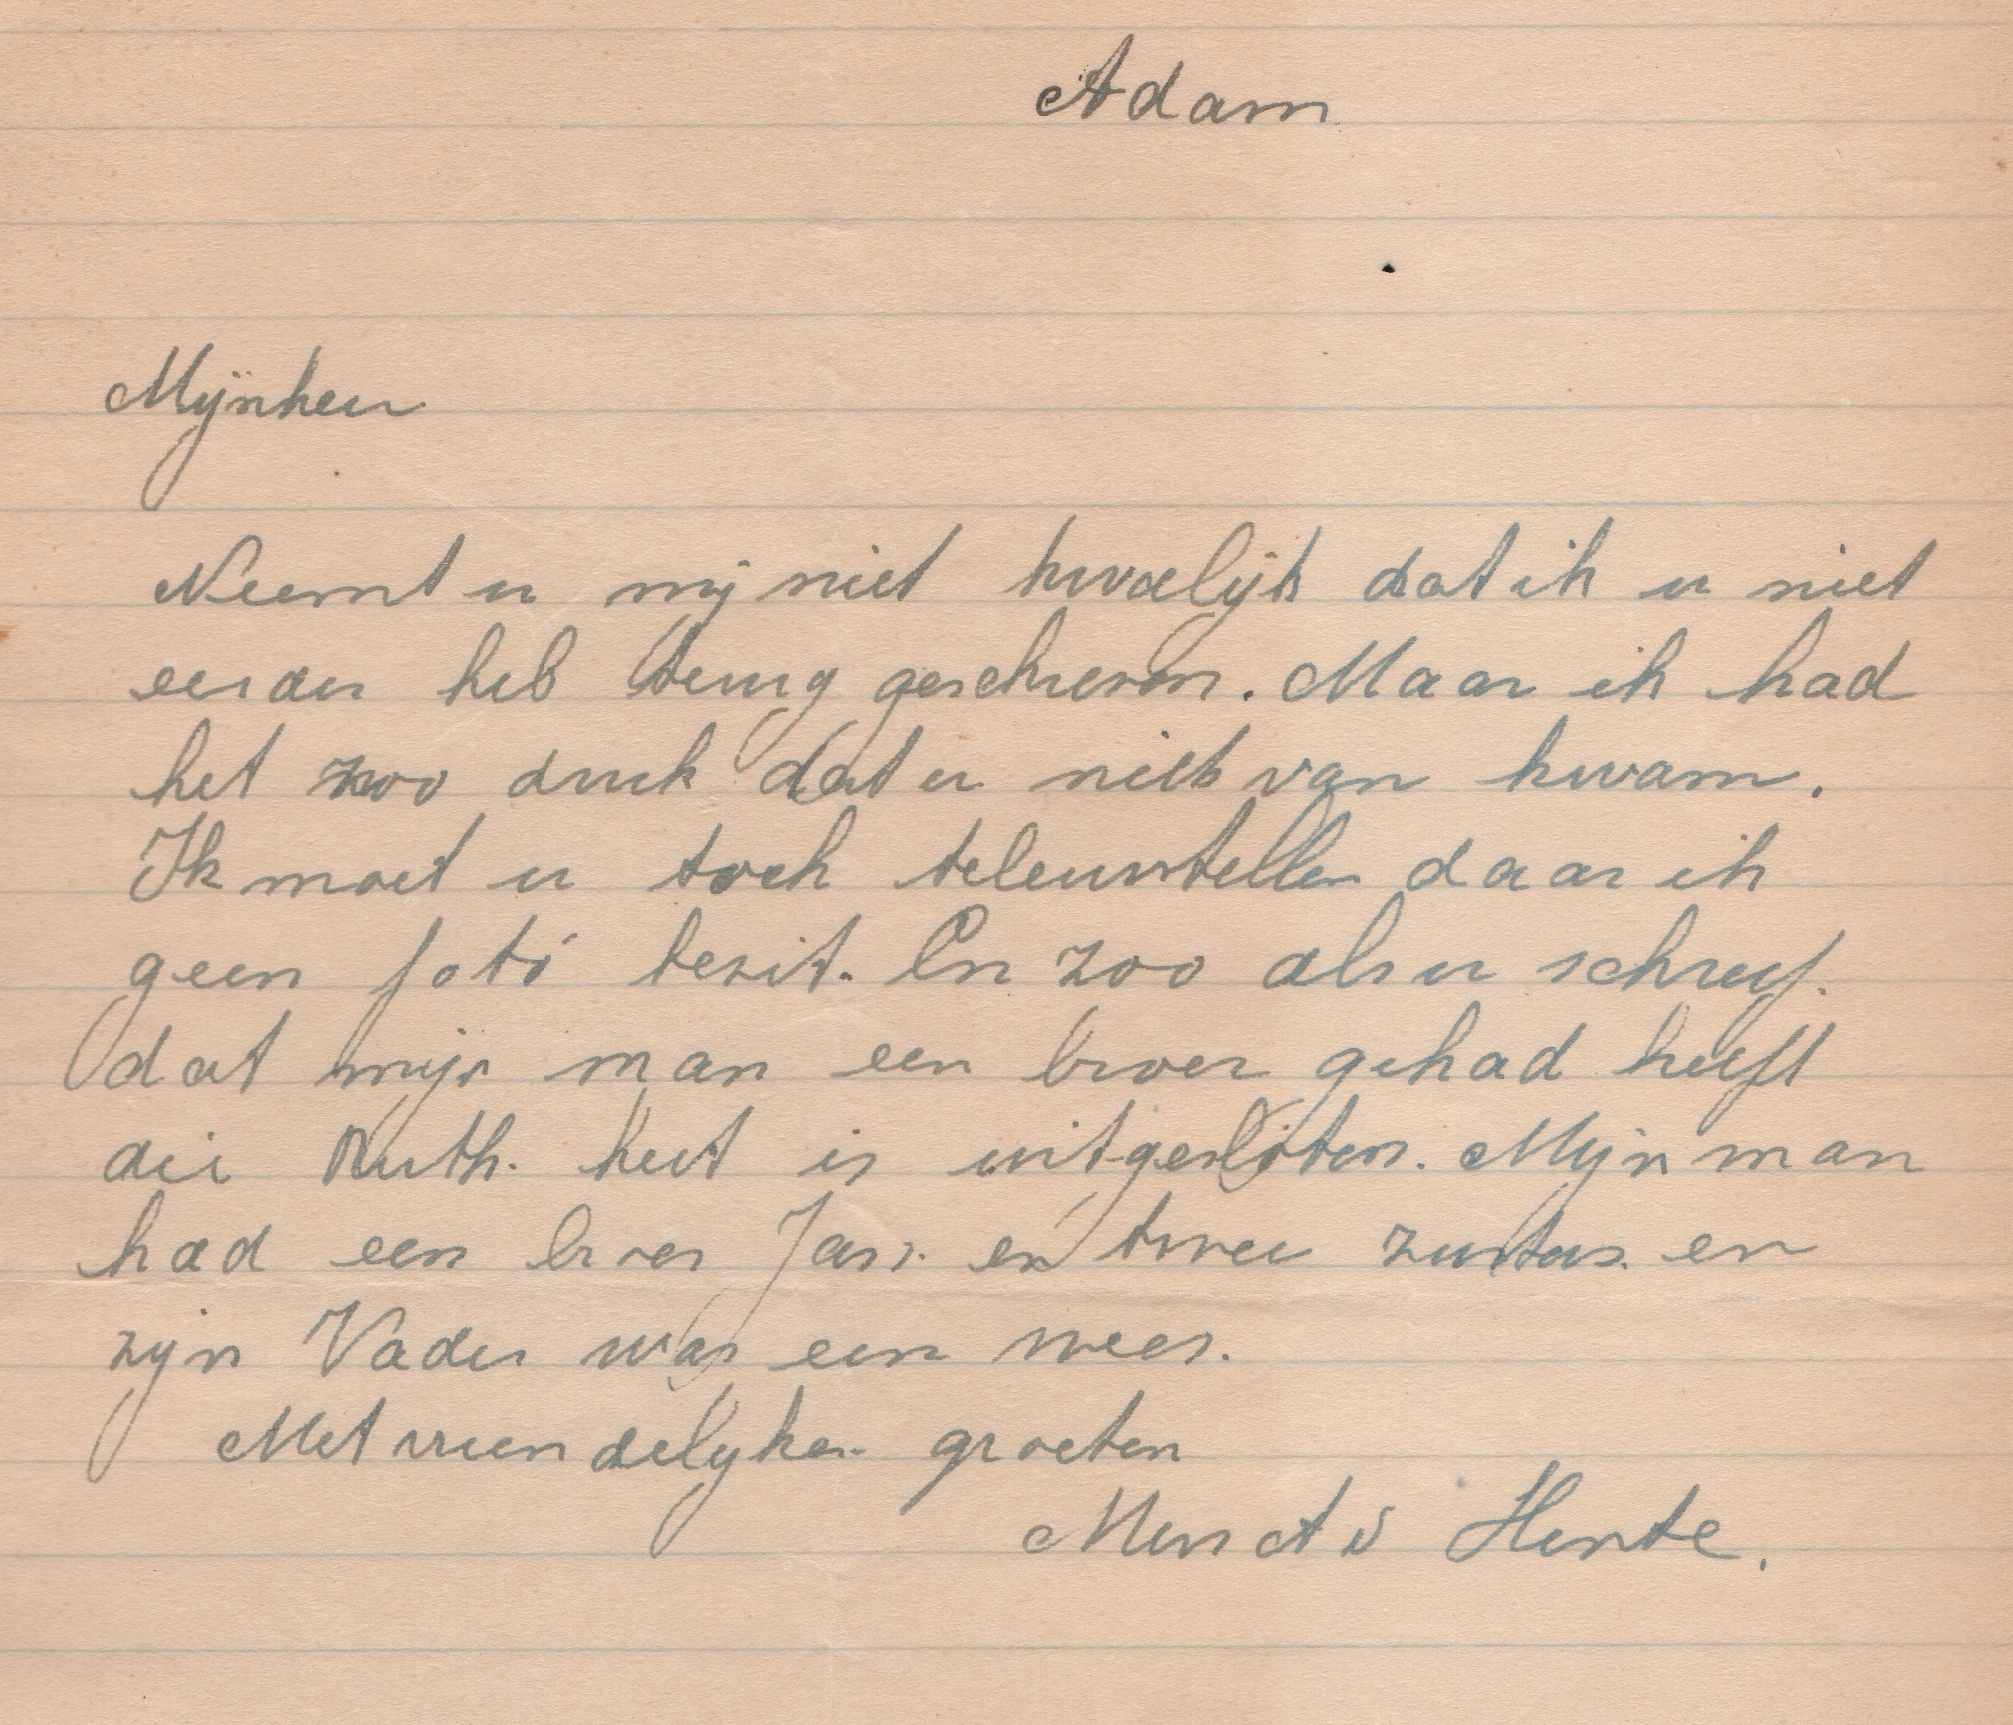 Adam
Mijnheer
Neemt u mij niet kwaelijk dat ik u niet
eerder heb terug geschreven. Maar ik had
het zoo druk dat er niets van kwam.
Ik moet u toch teleurstellen daar ik
geen foto bezit. En zoo als u schreef.
dat mijn man een broer gehad heeft
die Ruth. heet is uitgesloten. Mijn man
had een broer Jan. en twee zusters. en
zijn Vader was een wees.
Met vriendelyken groeten